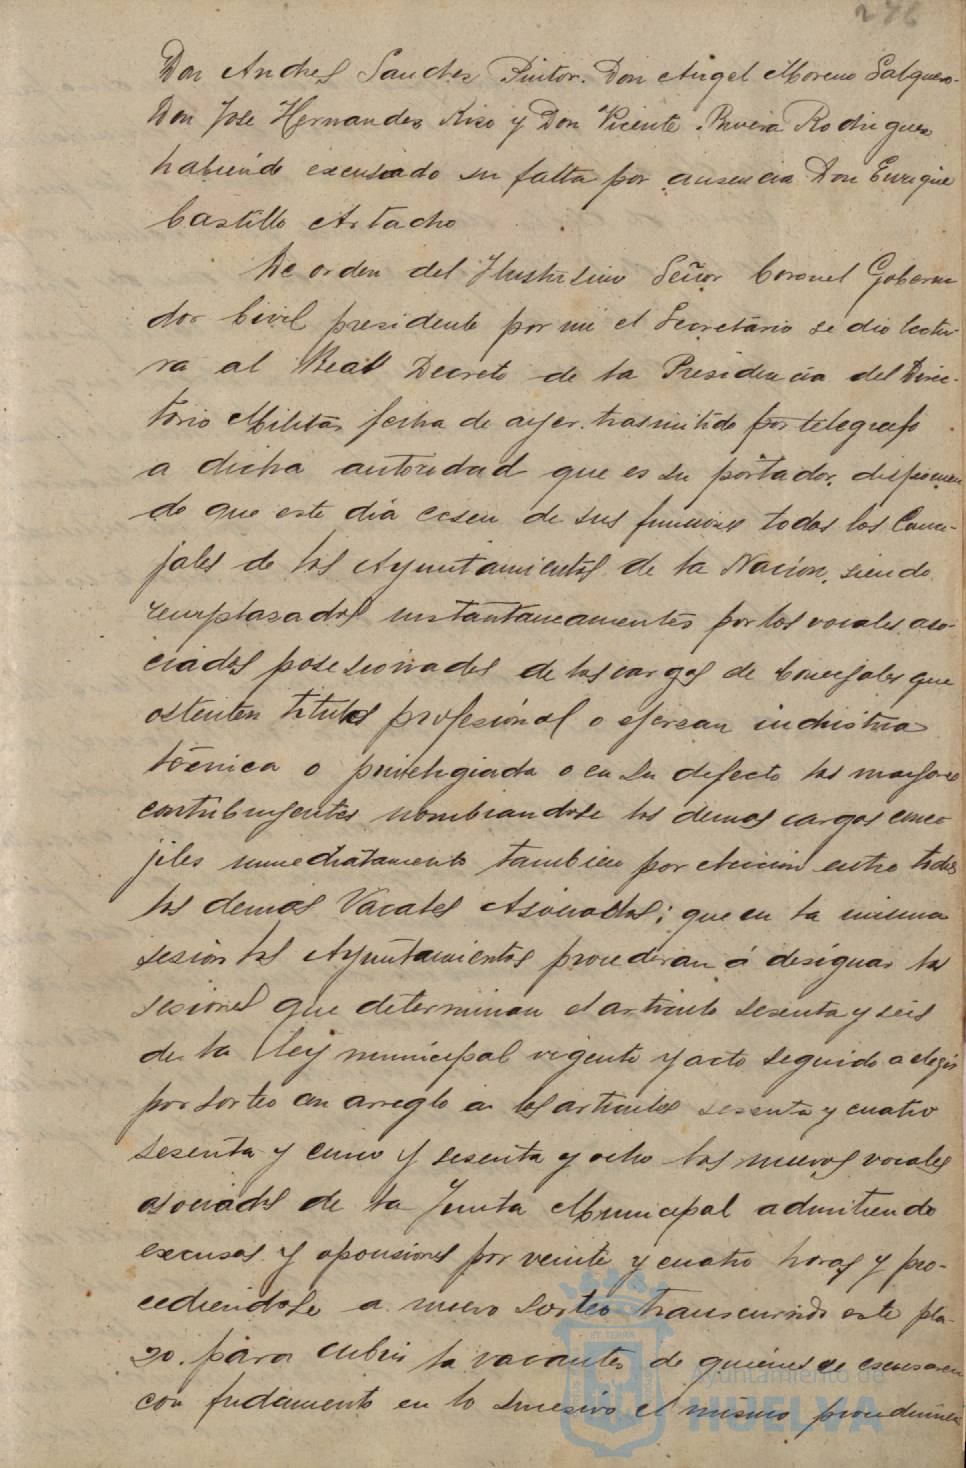 276
Don Andres Sanchez Pintor. Don Angel Moreno Salguero.
Don Jose Hernandez Rizo y Don Vicente Rivera Rodriguez
habiendo excusado su falta por ausencia Don Enrique
Castillo Artacho
De orden del Ilustrisimo Señor Coronel Goberna
dor Civil presidente por mi el Secretario se dio lectu-
ra al Real Decreto de la Presidencia del Direc-
torio Militar fecha de ayer trasmitido por telegrafo
a dicha autoridad que es su portador, disponien
do que este dia cesen de sus funciones todos los Conce-
jales de los Ayuntamientos de la Nacion, siendo
remplazados instantaneamentes por los vocales aso-
ciados posesionados de los cargos de Concejales que
ostenten titulos profesional o ejerzan industria
técnica o privilegiada o en su defecto los mayores
contribuyentes nombrandose los demas cargos conce
jiles inmediatamente tambien por eleccion entre todos
los demas Vocales Asociados; que en la misma
sesion los Ayuntamientos procederan á designar las
sesiones que determinan el articulo sesenta y seis
de la ley municipal vigente y acto seguido a elegir
por sorteo con arreglo a los articulos sesenta y cuatro
sesenta y cinco y sesenta y ocho los nuevos vocales
asociados de la Junta Municipal admitiendo
excusas y oposiciones por veinte y cuatro horas y pro-
cediendose a nuevo sorteo transcurrido este pla-
zo para cubrir la vacantes de quienes se excusaren
con fundamento en lo sucesivo el mismo procedimien
ET TERRÆ
Ayuntamiento de
HUELVA